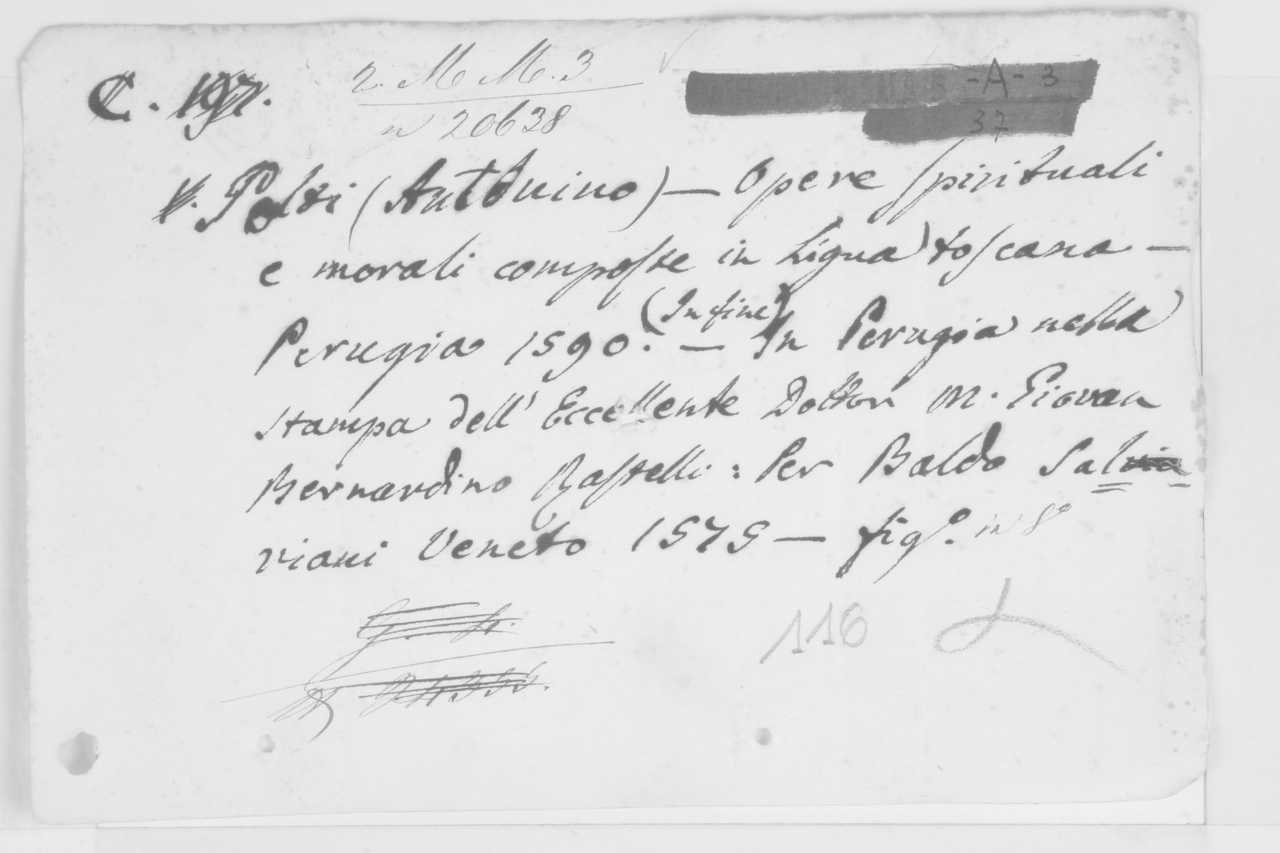 C.
2. M M. 3
-A- 3
n 20638
37
Polti (Antonino) — Opere spirituali
e morali composte in ligua toscana —
Perugia 1590. (In fine) — In Perugia nella
stampa dell' Eccellente Dottor M. Giovan
Bernardino Rastelli: Per Baldo Sal
viani Veneto 1575 — fig.º in 8º
116